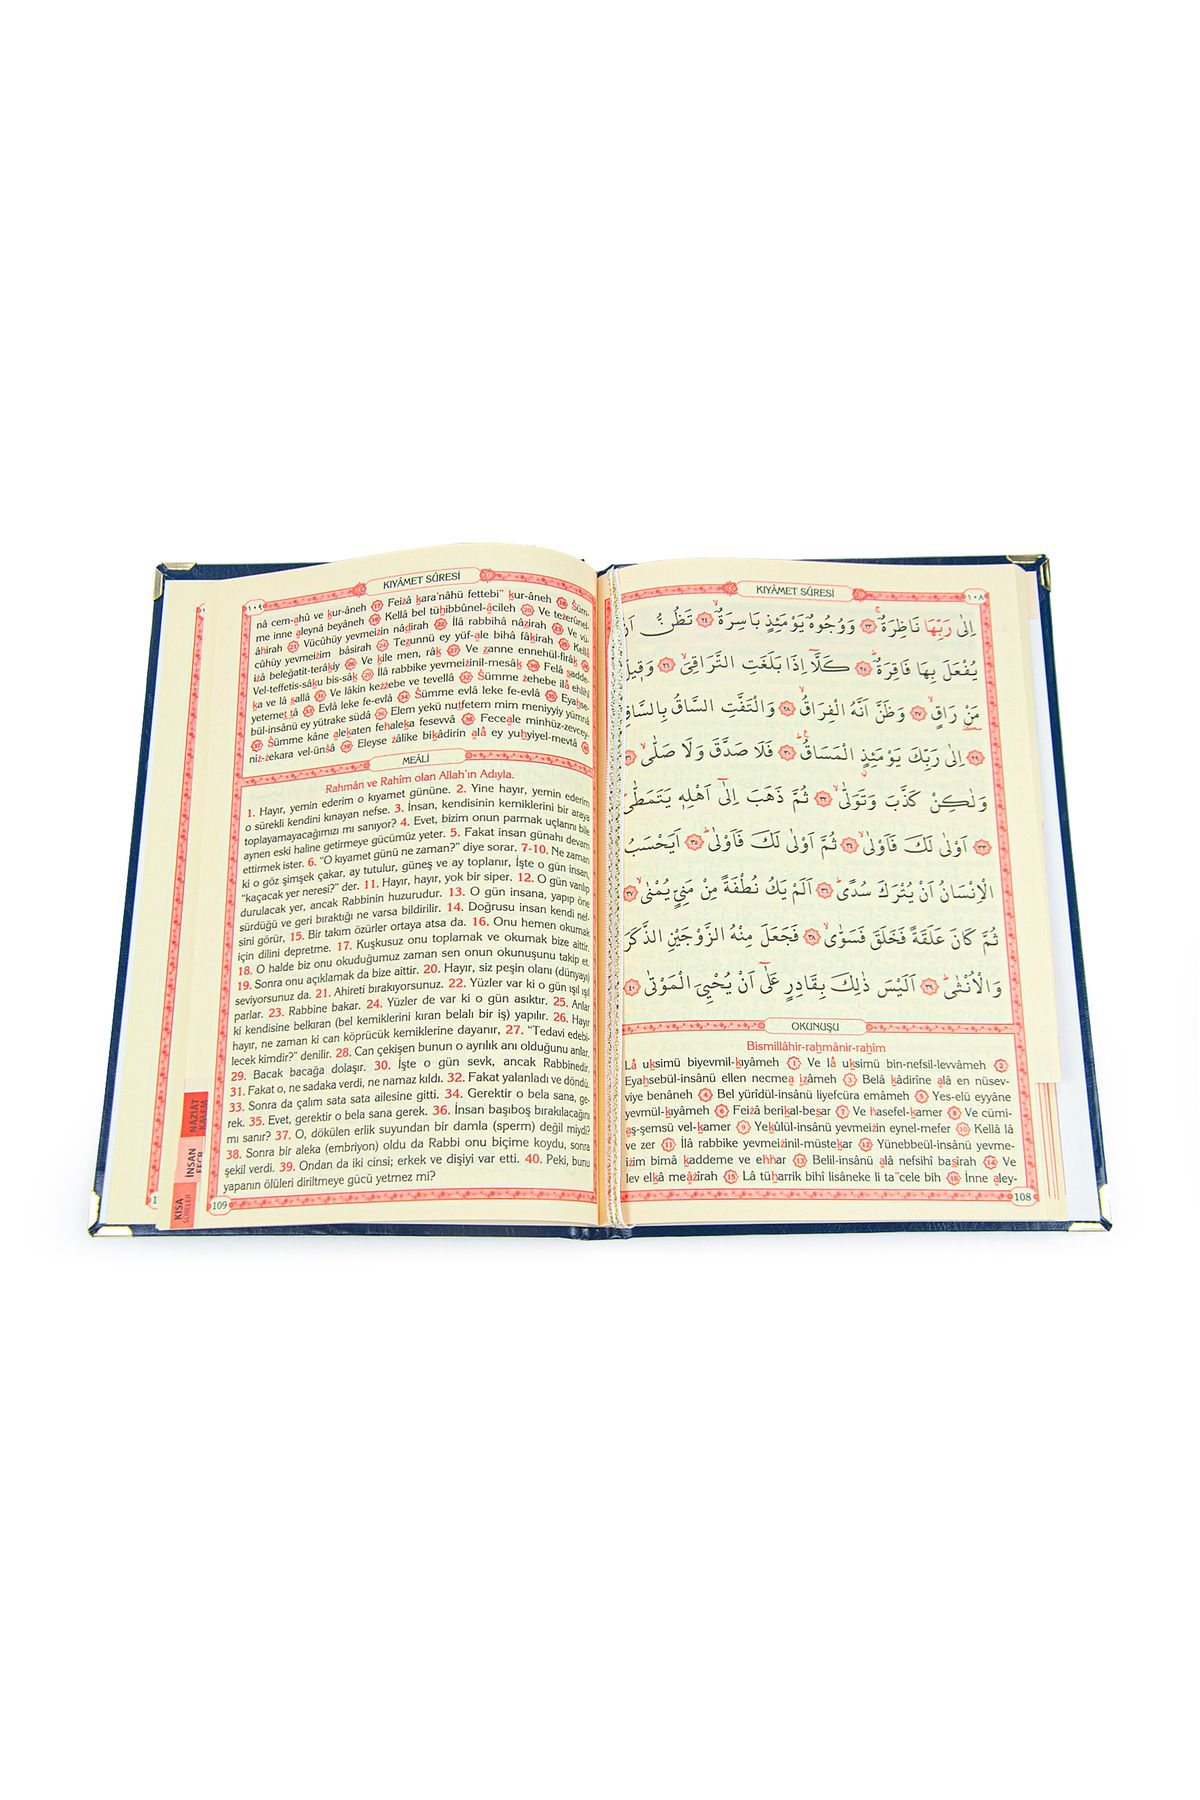 KIYÂMET SÛRESİ
١٠٨
اِلٰى رَبِّهَا نَاظِرَةٌۚ ﴿٢٣﴾ وَوُجُوهٌ يَوْمَئِذٍ بَاسِرَةٌۙ ﴿٢٤﴾ تَظُنُّ اَنْ
يُفْعَلَ بِهَا فَاقِرَةٌۜ ﴿٢٥﴾ كَلَّٓا اِذَا بَلَغَتِ التَّرَاقِيَۙ ﴿٢٦﴾ وَقِيلَ
مَنْ رَاقٍۙ ﴿٢٧﴾ وَظَنَّ اَنَّهُ الْفِرَاقُۙ ﴿٢٨﴾ وَالْتَفَّتِ السَّاقُ بِالسَّاقِ
﴿٢٩﴾ اِلٰى رَبِّكَ يَوْمَئِذٍۨ الْمَسَاقُۜ ﴿٣٠﴾ فَلَا صَدَّقَ وَلَا صَلّٰىۙ ﴿٣١﴾
وَلٰكِنْ كَذَّبَ وَتَوَلّٰىۙ ﴿٣٢﴾ ثُمَّ ذَهَبَ اِلٰٓى اَهْلِه۪ يَتَمَطّٰىۜ
﴿٣٣﴾ اَوْلٰى لَكَ فَاَوْلٰىۙ ﴿٣٤﴾ ثُمَّ اَوْلٰى لَكَ فَاَوْلٰىۜ ﴿٣٥﴾ اَيَحْسَبُ
الْاِنْسَانُ اَنْ يُتْرَكَ سُدًىۜ ﴿٣٦﴾ اَلَمْ يَكُ نُطْفَةً مِنْ مَنِيٍّ يُمْنٰىۙ ﴿٣٧﴾
ثُمَّ كَانَ عَلَقَةً فَخَلَقَ فَسَوّٰىۙ ﴿٣٨﴾ فَجَعَلَ مِنْهُ الزَّوْجَيْنِ الذَّكَرَ
وَالْاُنْثٰىۜ ﴿٣٩﴾ اَلَيْسَ ذٰلِكَ بِقَادِرٍ عَلٰٓى اَنْ يُحْيِيَ الْمَوْتٰى ﴿٤٠﴾
OKUNUŞU
Bismillâhir-rahmânir-rahîm
Lâ uksimü biyevmil-kıyâmeh 1 Ve lâ uksimü bin-nefsil-levvâmeh 2
Eyahsebül-insânü ellen necmea ızâmeh 3 Belâ kâdirîne alâ en nüsev-
viye benâneh 4 Bel yürîdül-insânü liyefcüra emâmeh 5 Yes-elü eyyâne
yevmül-kıyâmeh 6 Feiżâ berikal-besar 7 Ve hasefel-kamer 8 Ve cümi-
aş-şemsü vel-kamer 9 Yekûlül-insânü yevmeiżin eynel-mefer 10 Kellâ lâ
ve zer 11 İlâ rabbike yevmeiżinil-müstekar 12 Yünebbeül-insânü yevme-
iżin bimâ kaddeme ve ehhar 13 Belil-insânü alâ nefsihî basîrah 14 Ve
lev elkâ meâżîrah 15 Lâ tüharrik bihî lisâneke li ta"cele bih 16 İnne aley-
108
KIYÂMET SÛRESİ
١٠٩
nâ cem-ahû ve kur-âneh 17 Feiżâ kara'nâhü fettebi" kur-âneh 18 Śüm-
me inne aleynâ beyâneh 19 Kellâ bel tühibbûnel-âcileh 20 Ve teżerûnel-
âhirah 21 Vücûhüy yevmeiżin nâdirah 22 İlâ rabbihâ nâzirah 23 Ve vü-
cûhüy yevmeiżim bâsirah 24 Tezunnü ey yüf-ale bihâ fâkirah 25 Kellâ
iżâ beleğatit-terâkıy 26 Ve kîle men, râk 27 Ve zanne ennehül-firâk 28
Vel-teffetis-sâku bis-sâk 29 İlâ rabbike yevmeiżinil-mesâk 30 Felâ sadde-
ka ve lâ sallâ 31 Ve lâkin keżżebe ve tevellâ 32 Śümme żehebe ilâ ehlihî
yetemettâ 33 Evlâ leke fe-evlâ 34 Śümme evlâ leke fe-evlâ 35 Eyahse-
bül-insânü ey yütrake südâ 36 Elem yekü nutfetem mim meniyyiy yümnâ
37 Śümme kâne alekaten fehaleka fesevvâ 38 Feceale minhüz-zevcey-
niż-żekara vel-ünśâ 39 Eleyse żâlike bikâdirin alâ ey yuhyiyel-mevtâ 40
MEÂLİ
Rahmân ve Rahîm olan Allah'ın Adıyla.
1. Hayır, yemin ederim o kıyamet gününe. 2. Yine hayır, yemin ederim
o sürekli kendini kınayan nefse. 3. İnsan, kendisinin kemiklerini bir araya
toplayamayacağımızı mı sanıyor? 4. Evet, bizim onun parmak uçlarını bile
aynen eski haline getirmeye gücümüz yeter. 5. Fakat insan günahı devam
ettirmek ister. 6. "O kıyamet günü ne zaman?" diye sorar. 7-10. Ne zaman
ki o göz şimşek çakar, ay tutulur, güneş ve ay toplanır, İşte o gün insan,
"kaçacak yer neresi?" der. 11. Hayır, hayır, yok bir siper. 12. O gün varılıp
durulacak yer, ancak Rabbinin huzurudur. 13. O gün insana, yapıp öne
sürdüğü ve geri bıraktığı ne varsa bildirilir. 14. Doğrusu insan kendi nef-
sini görür, 15. Bir takım özürler ortaya atsa da. 16. Onu hemen okumak
için dilini depretme. 17. Kuşkusuz onu toplamak ve okumak bize aittir.
18. O halde biz onu okuduğumuz zaman sen onun okunuşunu takip et.
19. Sonra onu açıklamak da bize aittir. 20. Hayır, siz peşin olanı (dünyayı)
seviyorsunuz da. 21. Ahireti bırakıyorsunuz. 22. Yüzler var ki o gün ışıl ışıl
parlar. 23. Rabbine bakar. 24. Yüzler de var ki o gün asıktır. 25. Anlar
ki kendisine belkıran (bel kemiklerini kıran belalı bir iş) yapılır. 26. Hayır
hayır, ne zaman ki can köprücük kemiklerine dayanır, 27. "Tedavi edebi-
lecek kimdir?" denilir. 28. Can çekişen bunun o ayrılık anı olduğunu anlar.
29. Bacak bacağa dolaşır. 30. İşte o gün sevk, ancak Rabbinedir.
31. Fakat o, ne sadaka verdi, ne namaz kıldı. 32. Fakat yalanladı ve döndü.
33. Sonra da çalım sata sata ailesine gitti. 34. Gerektir o bela sana, ge-
rek. 35. Evet, gerektir o bela sana gerek. 36. İnsan başıboş bırakılacağını
mı sanır? 37. O, dökülen erlik suyundan bir damla (sperm) değil miydi?
38. Sonra bir aleka (embriyon) oldu da Rabbi onu biçime koydu, sonra
şekil verdi. 39. Ondan da iki cinsi; erkek ve dişiyi var etti. 40. Peki, bunu
yapanın ölüleri diriltmeye gücü yetmez mi?
109
NÂZİÂT
KALEM
İNSAN
FECR
KISA
SÛRELER